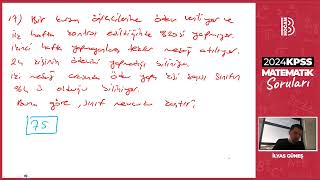 19) Bir kurum öğrencilerine ödev veriliyor ve
ilk hafta kontrol edildiğinde %20si yapmıyor.
ikinci hafta yapmayanlara tekrar mesaj atılıyor.
24 kişinin ödevini yapmadığı biliniyor.
iki mesaj arasında ödev yapan kişi sayısı sınıfın
%4 ü olduğu biliniyor.
Buna göre, sınıf mevcudu kaçtır?
75
B
2024 KPSS
MATEMATİK
Soruları
İLYAS GÜNEŞ